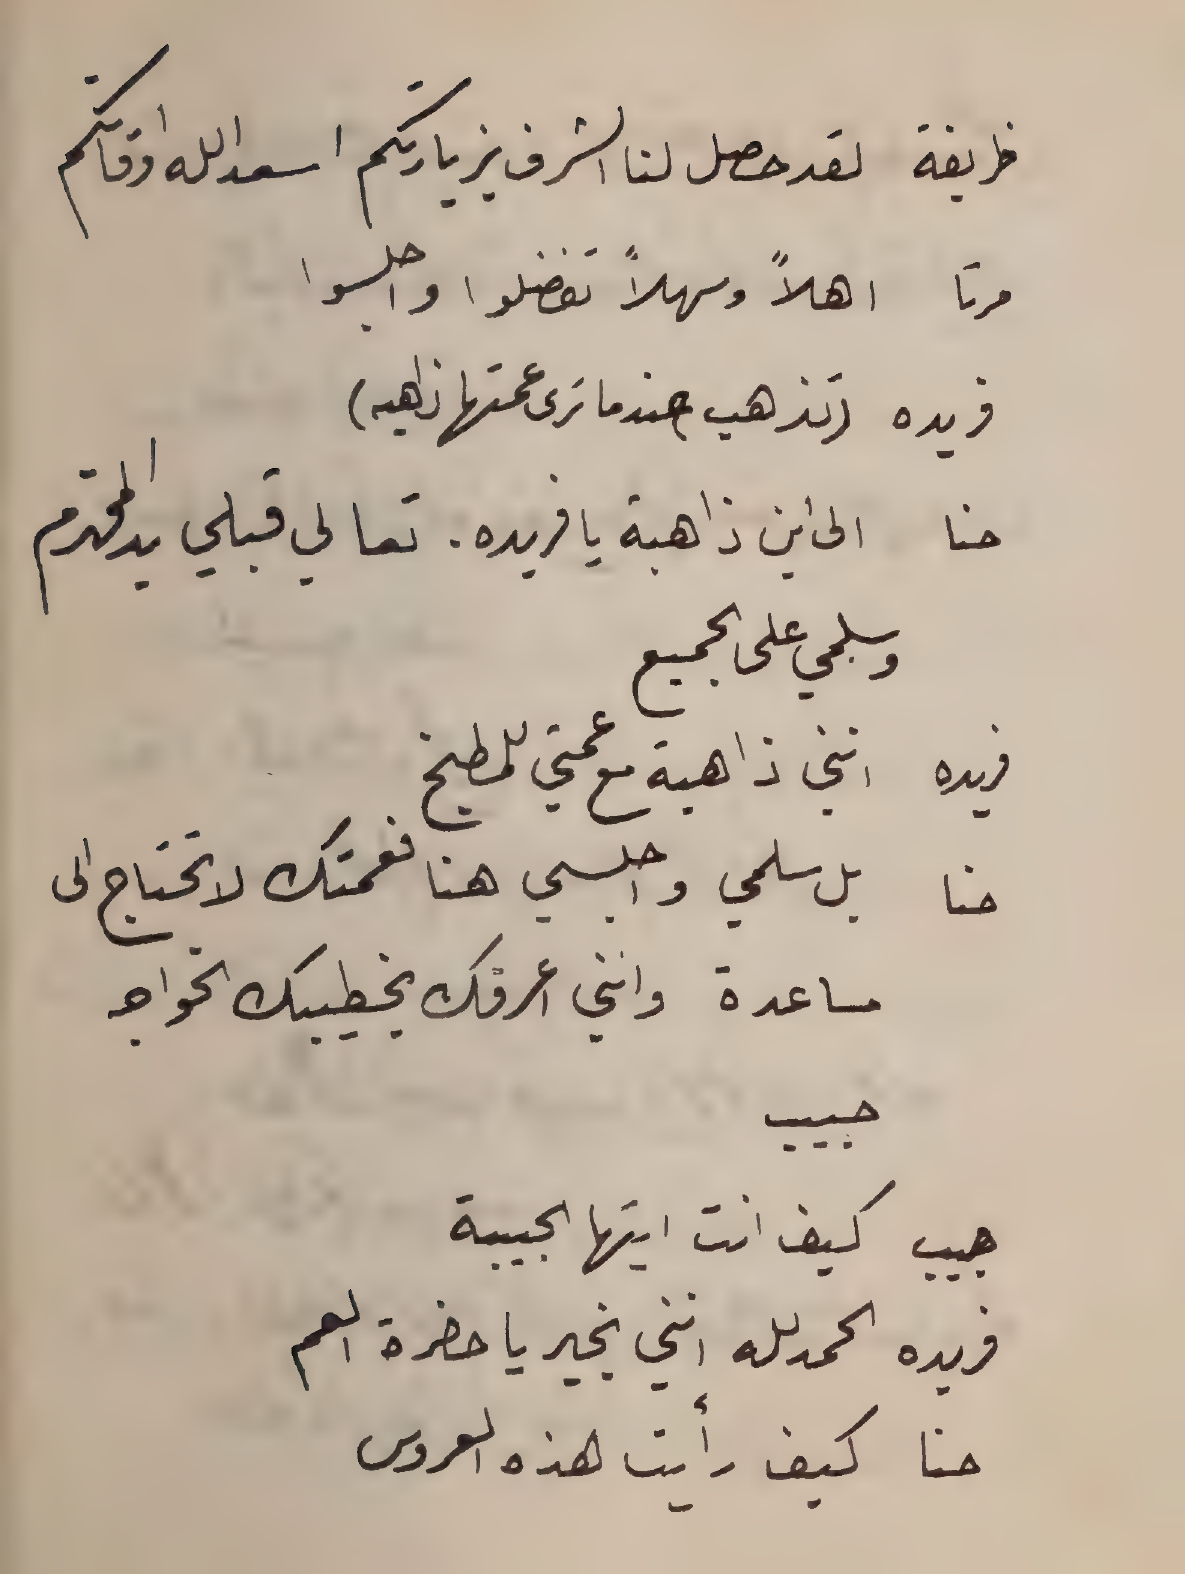 ظريفة لقد حصل لنا الشرف بزيارتكم اسعد الله اوقاتكم
مرتا اهلاً وسهلاً تفضلوا واجلسوا
فريده (تذهب عندما ترى عمتها ذاهبه)
حنا الى اين ذاهبة يا فريده. تعالي قبلي يد المحترم
وسلمي على الجميع
فريده انني ذاهبة مع عمتي للمطبخ
حنا بل سلمي واجلسي هنا فعمتك لا تحتاج الى
مساعدة وانني اعرفك بخطيبك الخواجه
حبيب
حبيب كيف انت ايتها الحبيبة
فريده الحمد لله انني بخير يا حضرة العم
حنا كيف رأيت هذه العروس